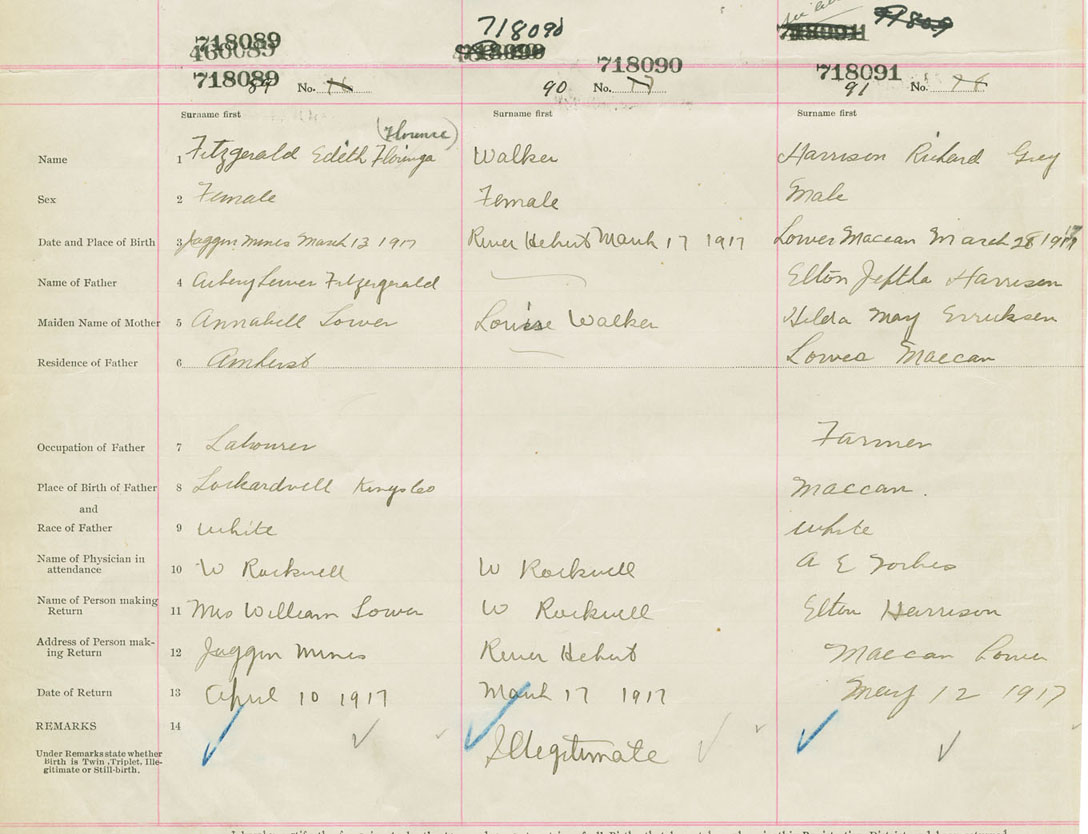 718090
718089
718089 89 No. 718090 90 No. 17 718091 91 No.
Surname first Surname first Surname first
(Florence)
Name 1 Fitzgerald Edith Florenga Walker Harrison Richard Grey
Sex 2 Female Female Male
Date and Place of Birth 3 Joggin Mines March 13 1917 River Hebert March 17 1917 Lower Maccan March 28 1917
Name of Father 4 Fitzgerald Elton Jeptha Harrison
Maiden Name of Mother 5 Annabell Lower Louise Walker Hilda May Erricksen
Residence of Father 6 Amherst Lower Maccan
Occupation of Father 7 Labourer Farmer
Place of Birth of Father 8 Kings Co Maccan.
and
Race of Father 9 white white
Name of Physician in
attendance 10 W Rockwell W Rockwell A E Forbes
Name of Person making
Return 11 Mrs William Lower W Rockwell Elton Harrison
Address of Person mak-
ing Return 12 Joggin Mines River Hebert Maccan Lower
Date of Return 13 April 10 1917 March 17 1917 May 12 1917
REMARKS 14
Illegitimate
Under Remarks state whether
Birth is Twin, Triplet, Ille-
gitimate or Still-birth.